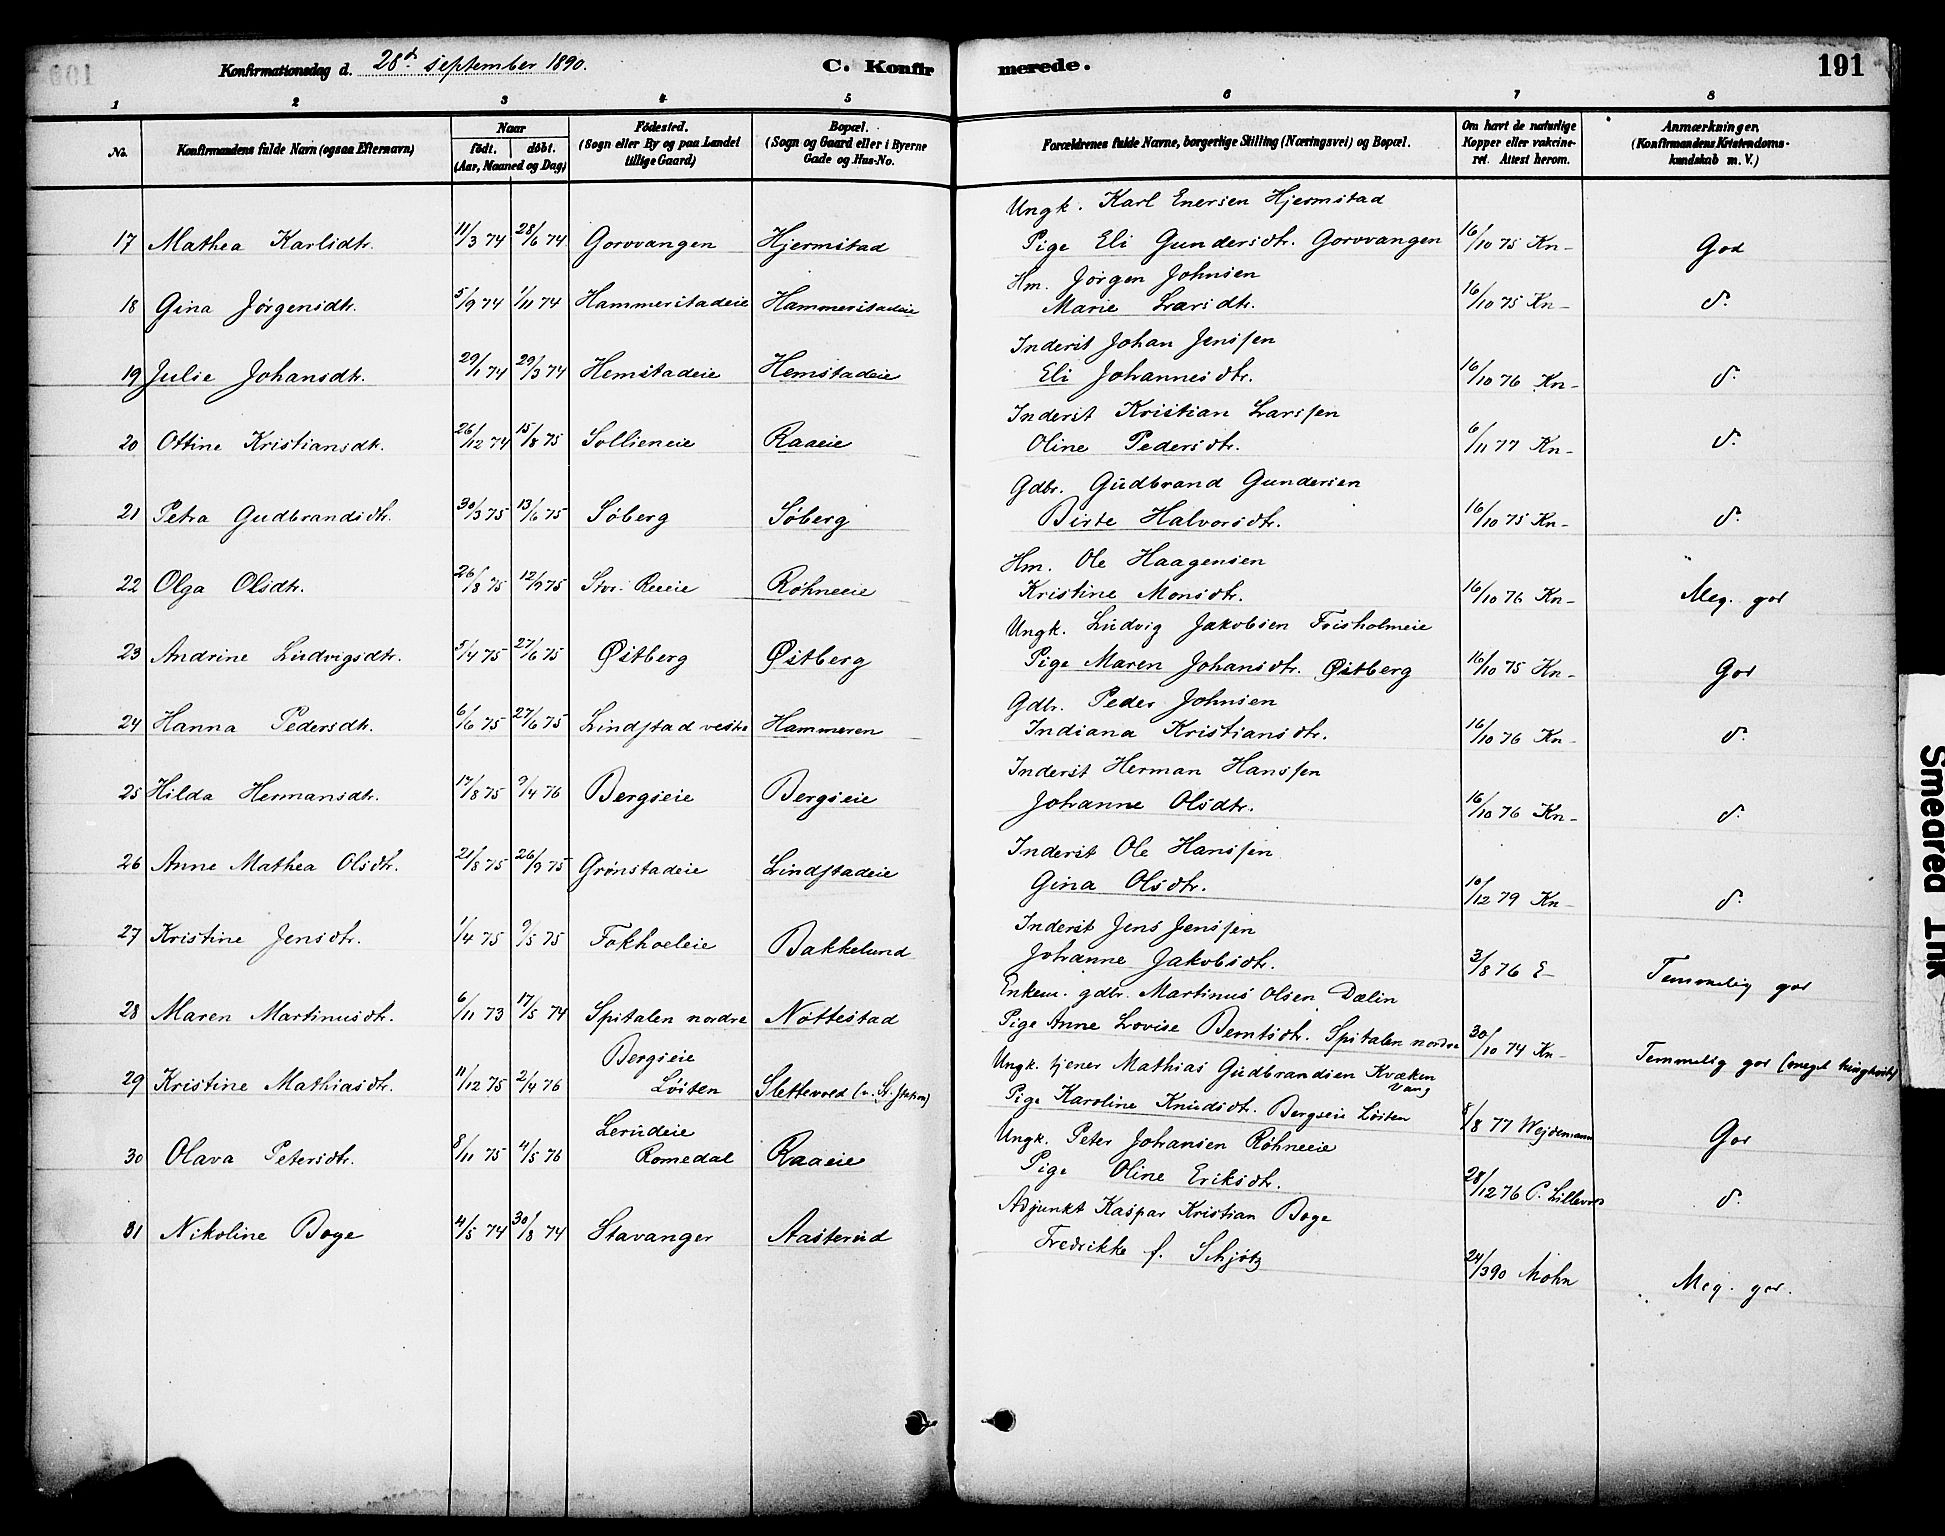 Konfirmationsdag d. 28d september 1890.
C. Konfirmerede.
191
1 2 3 4 5 6 7 8
No.
Konfirmandens fulde Navn (ogsaa Efternavn)
Naar
födt. döbt.
(Aar, Maaned og Dag)
Födested.
(Sogn eller By og paa Landet
tillige Gaard)
Bopæl.
(Sogn og Gaard eller i Byerne
Gade og Hus-No.
Forældrenes fulde Navne, borgerlige Stilling (Næringsvei) og Bopæl.
Om havt de naturlige
Kopper eller vakcine-
ret. Attest herom.
Anmærkninger.
(Konfirmandens Kristendoms-
kundskab m. V.)
Ungk. Karl Enersen Hjermstad
17 Mathea Karlsdtr. 11/3 74 28/6 74 Gorovangen Hjermstad Pige Eli Gundersdtr. Gorovangen 16/10 75 Kn- God
Hm. Jørgen Johnsen
18 Gina Jørgensdtr. 5/9 74 1/11 74 Hammerstadeie Hammerstadeie Marie Larsdtr. 16/10 75 Kn- d.
Inderst Johan Jenssen
19 Julie Johansdtr. 29/1 74 29/3 74 Hemstadeie Hemstadeie Eli Johannesdtr. 16/10 76 Kn- d.
Inderst Kristian Larssen
20 Ottine Kristiansdtr. 26/12 74 15/8 75 Sollieneie Raaeie Oline Pedersdtr. 6/11 77 Kn- d.
Gdbr. Gudbrand Gundersen
21 Petra Gudbrandsdtr. 30/3 75 13/6 75 Søberg Søberg Birte Halvorsdtr. 16/10 75 Kn- d.
Hm. Ole Haagensen
22 Olga Olsdtr. 26/8 75 12/9 75 Stor. Reeie Røhneeie Kristine Monsdtr. 16/10 76 Kn- Meg. god
Ungk. Ludvig Jakobsen Frisholmeie
23 Andrine Ludvigsdtr. 5/4 75 27/6 75 Østberg Østberg Pige Maren Johansdtr. Østberg 16/10 75 Kn- God
Gdbr. Peder Johnsen
24 Hanna Pedersdtr. 6/6 75 27/6 75 Lindstad vestre Hammeren Indiana Kristiansdtr. 16/10 76 Kn- d.
Inderst Herman Hanssen
25 Hilda Hermansdtr. 17/8 75 9/4 76 Bergseie Bergseie Johanne Olsdtr. 16/10 76 Kn- d.
Inderst Ole Hanssen
26 Anne Mathea Olsdtr. 21/8 75 26/9 75 Grønstadeie Lindstadeie Gina Olsdtr. 10/12 79 Kn- d.
Inderst Jens Jenssen
27 Kristine Jensdtr. 1/4 75 9/5 75 Fokhoeleie Bakkelund Johanne Jakobsdtr. 3/8 76 E- Temmelig god
Enkem. gdbr. Martinus Olsen Dælin
28 Maren Martinusdtr. 6/11 73 17/5 74 Spitalen nordre Nøttestad Pige Anne Lovise Berntsdtr. Spitalen nordre 30/10 74 Kn- Temmelig god (meget tunghørt)
Bergseie Ungk. tjener Mathias Gudbrandsen Kvæken
Vang
29 Kristine Mathiasdtr. 11/12 75 2/4 76 Løiten Slettevold (v. St. station) Pige Karoline Knudsdtr. Bergseie Løiten 8/8 77 Wejdemann God
Lerudeie Ungk. Peter Johansen Røhneeie
30 Olava Petersdtr. 8/11 75 4/5 76 Romedal Raaeie Pige Oline Eriksdtr. 28/12 76 P. Lillevold d
Adjunkt Kaspar Kristian Boge
31 Nikoline Boge 4/5 74 30/8 74 Stavanger Aasterud Fredrikke f. Schjøtz 24/3 90 Mohn Meg. god.
Smeared Ink